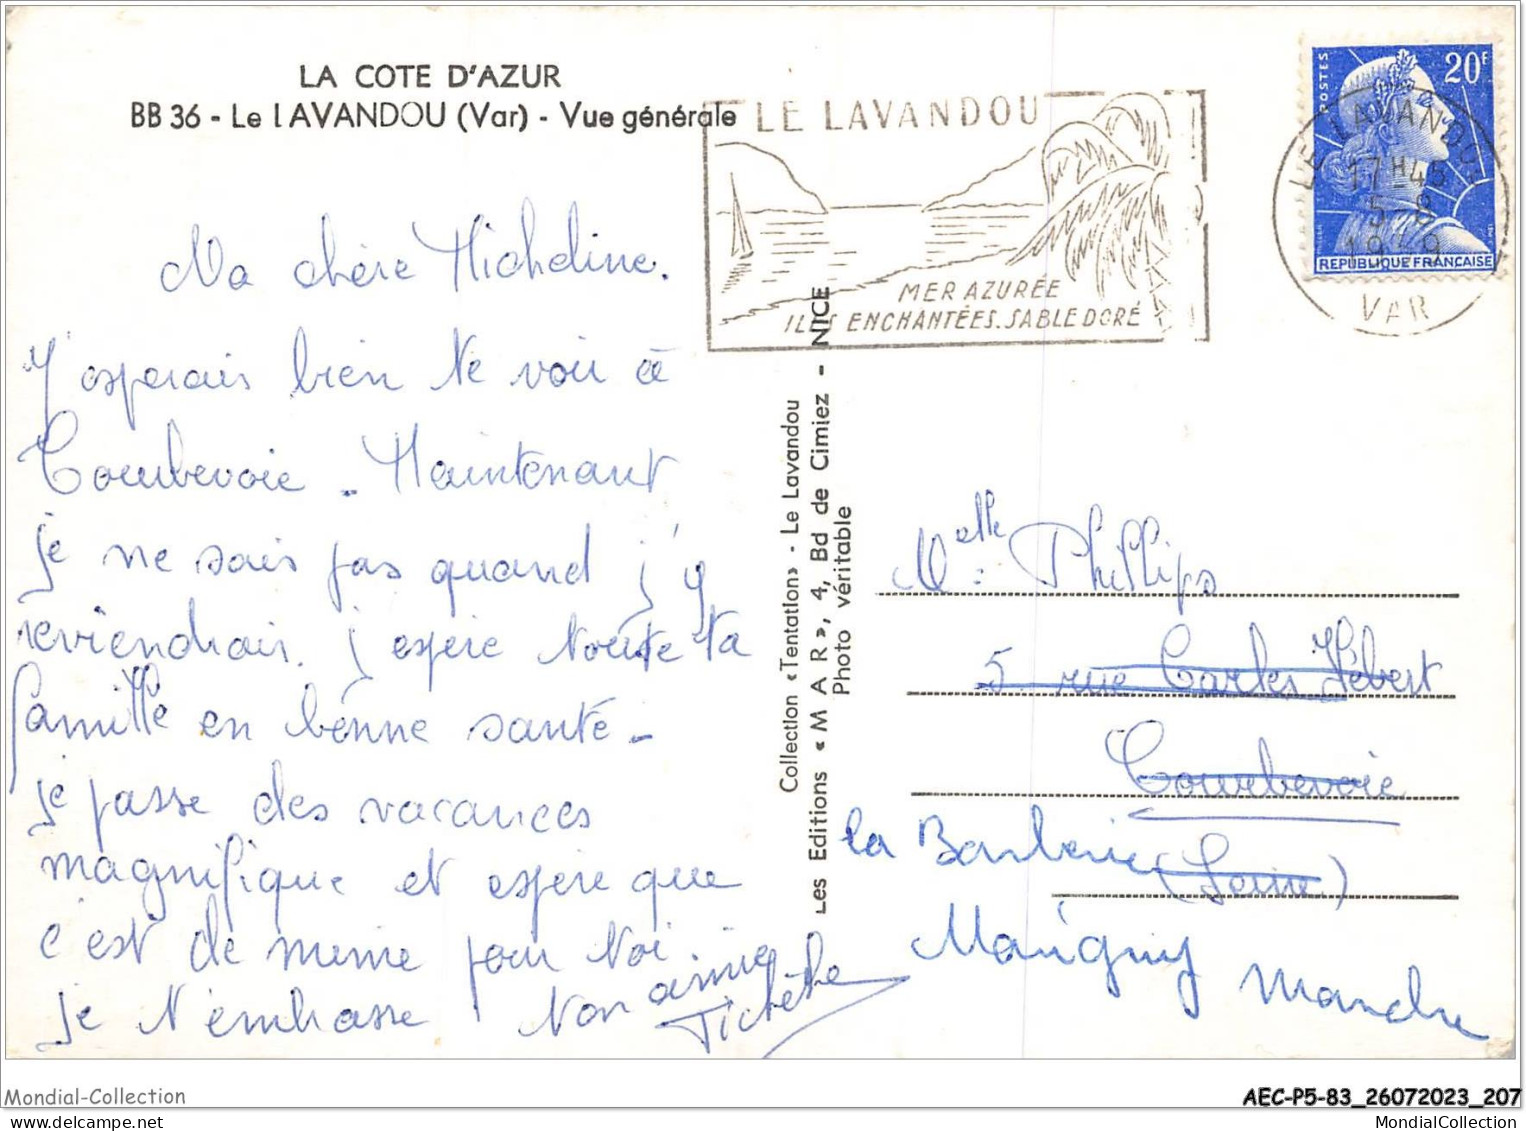 LA COTE D'AZUR
BB 36 - Le LAVANDOU (Var) - Vue générale
LE LAVANDOU
MER AZUREE
ILES ENCHANTÉES. SABLE DORÉ
POSTES
20F
REPUBLIQUE FRANÇAISE
LE LAVANDOU
17H45
5-8
19
VAR
Ma chère Micheline.
J'esperais bien te voir à
Courbevoie - Maintenant
je ne sais pas quand j'y
reviendrais. j'espère toute ta
famille en bonne santé -
je passe des vacances
magnifique et espère que
c'est de même pour toi
je t'embrasse. Ton amie
Collection «Tentation» - Le Lavandou
Les Editions « M A R », 4, Bd de Cimiez - NICE
Photo véritable
Melle Phillips
5 rue Carles Hébert
Courbevoie
(Seine)
la Barberie
Marigny Manche
Mondial-Collection
AEC-P5-83_26072023_207
BB 36
MondialCollection